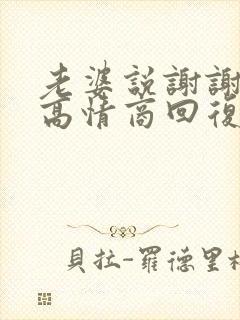 老婆説謝謝
高情商回復
貝拉-羅德里